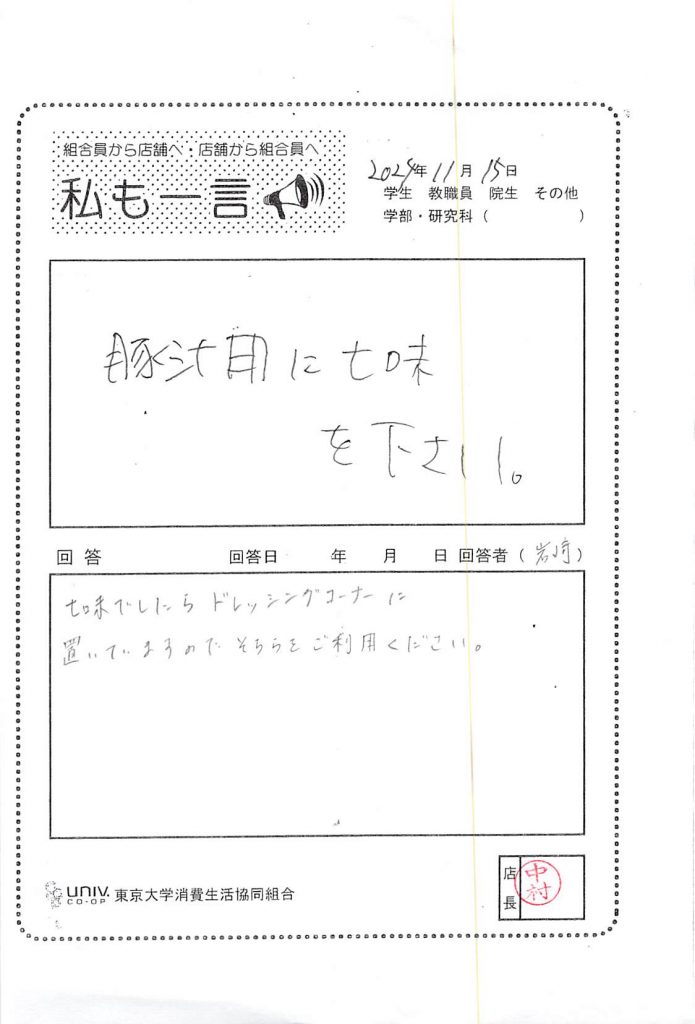 組合員から店舗へ・店舗から組合員へ
私も一言
2024年11月15日
学生 教職員 院生 その他
学部・研究科（ ）
豚汁用に七味
を下さい。
回答 回答日 年 月 日 回答者（岩崎）
七味でしたらドレッシングコーナーに
置いていますのでそちらをご利用ください。
UNIV.
CO-OP
東京大学消費生活協同組合
店長
中村